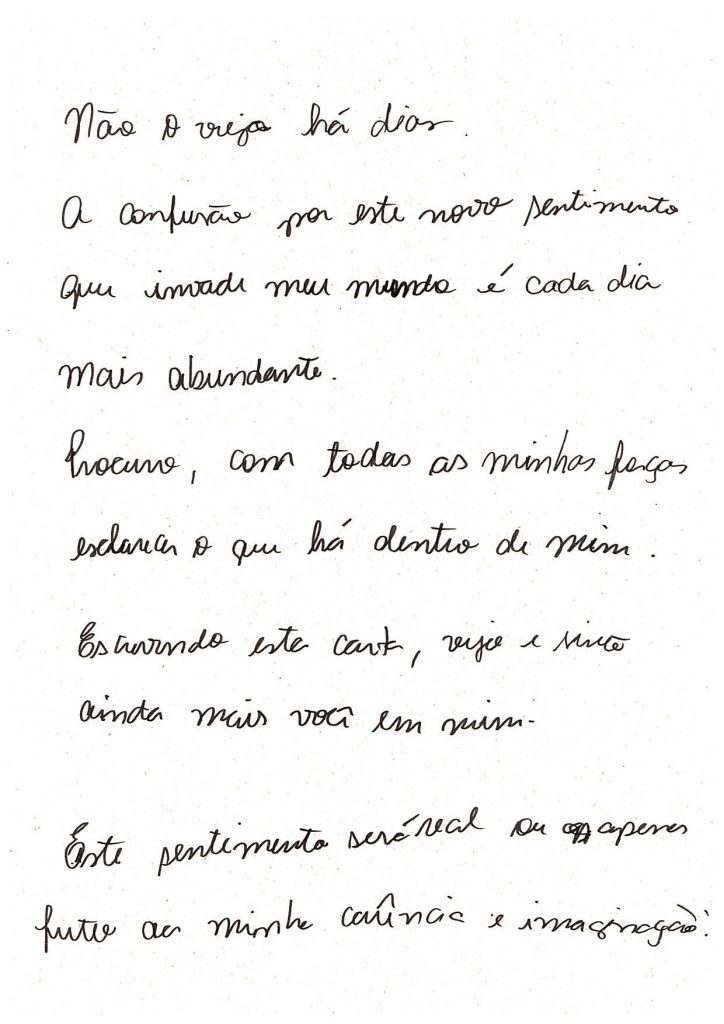 Não o vejo há dias.
A confusão por este novo sentimento
que invade meu mundo é cada dia
mais abundante.
Procuro, com todas as minhas forças
esclarecer o que há dentro de mim.
Escrevendo esta carta, vejo e sinto
ainda mais você em mim.
Este sentimento será real ou apenas
fruto da minha carência e imaginação?